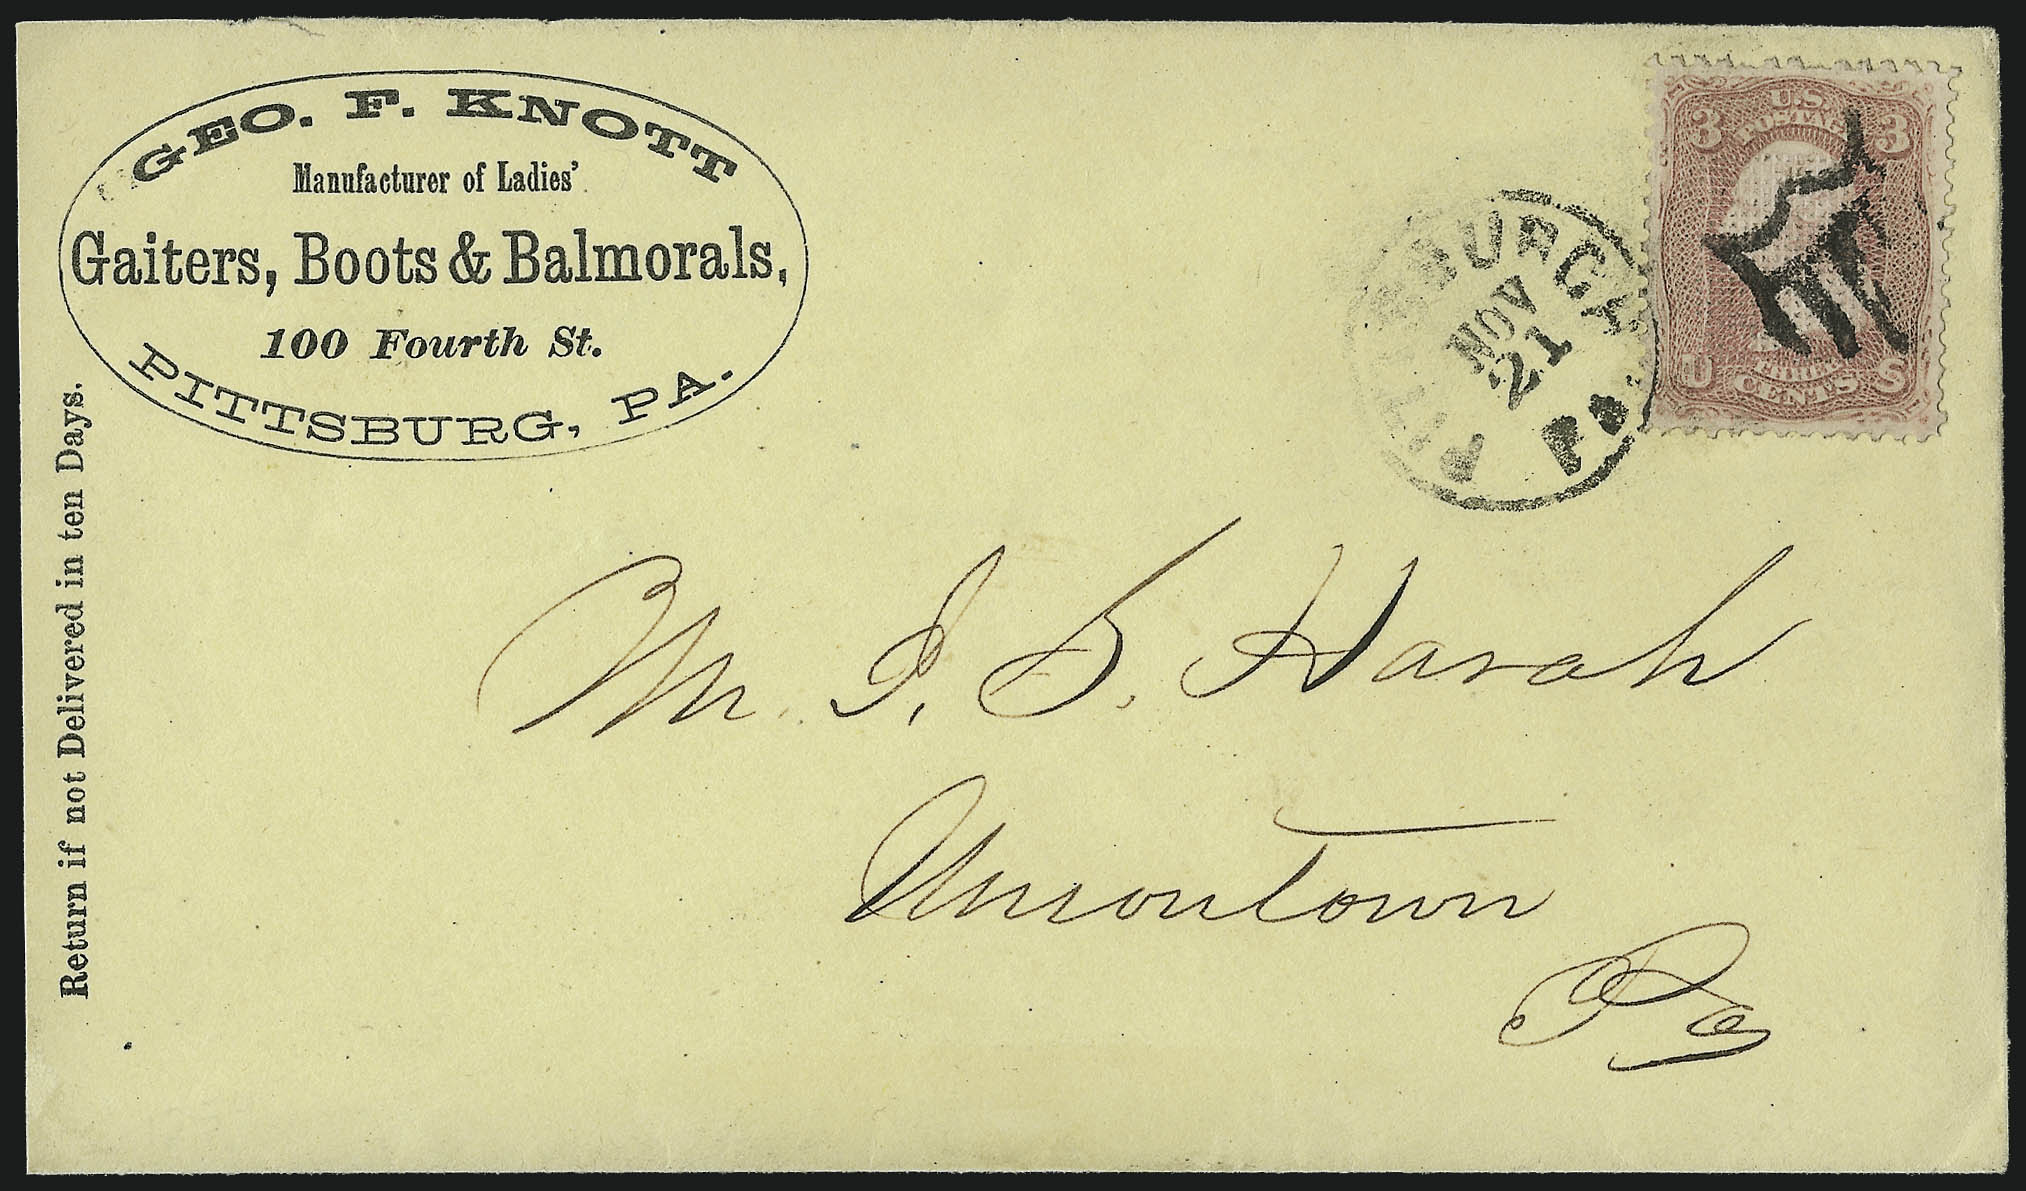 GEO. F. KNOTT
Manufacturer of Ladies'
Gaiters, Boots & Balmorals,
100 Fourth St.
PITTSBURG, PA.
Return if not Delivered in ten Days.
PITTSBURGH
NOV
21
PA.
U.S.
POSTAGE
3 3
U S
THREE
CENTS
Mr. J. S. Harah
Uniontown
Pa